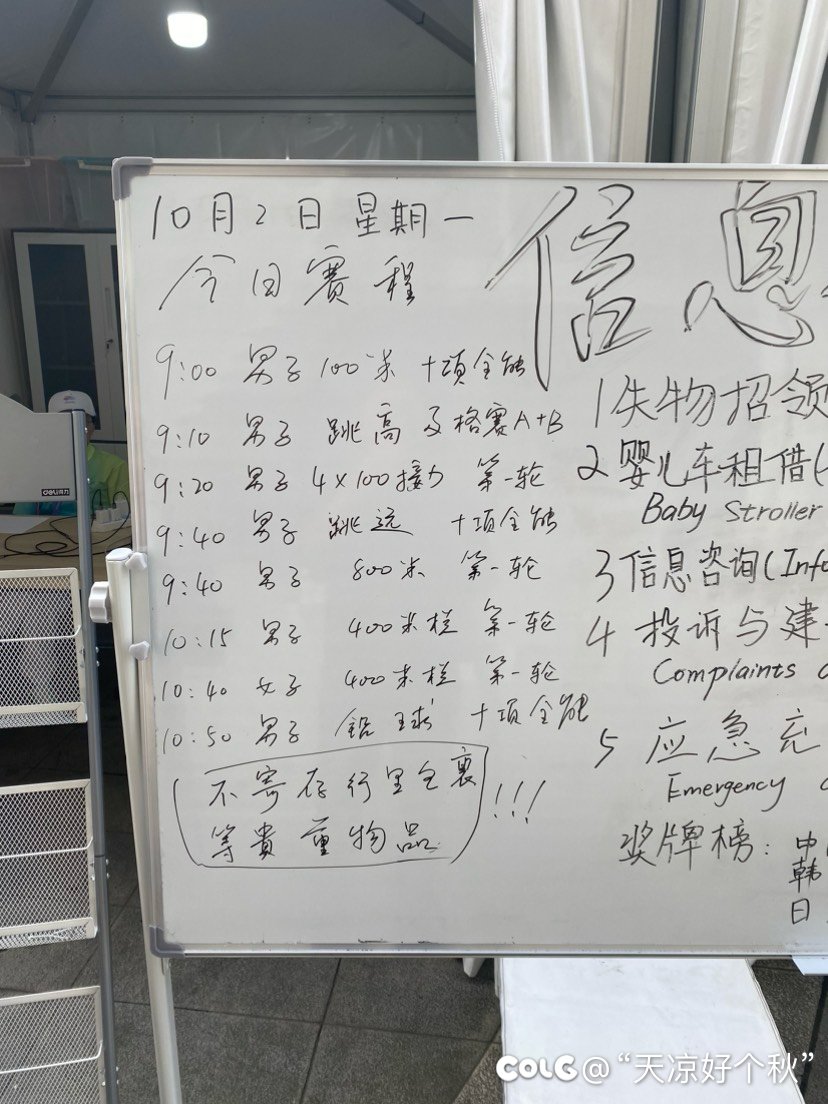 10月2日 星期一
今日赛程
9:00 男子 100米 十项全能
9:10 男子 跳高 及格赛A+B
9:20 男子 4×100接力 第一轮
9:40 男子 跳远 十项全能
9:40 男子 800米 第一轮
10:15 男子 400米栏 第一轮
10:40 女子 400米栏 第一轮
10:50 男子 铅球 十项全能
不寄存行里包裹
等貴重物品
!!!
信息
1失物招领
2婴儿车租借(
Baby Stroller
3信息咨询(Info
4投诉与建
Complaints
5应急充
Emergency
奖牌榜:中
韩
日
deli得力
COLG@“天凉好个秋”